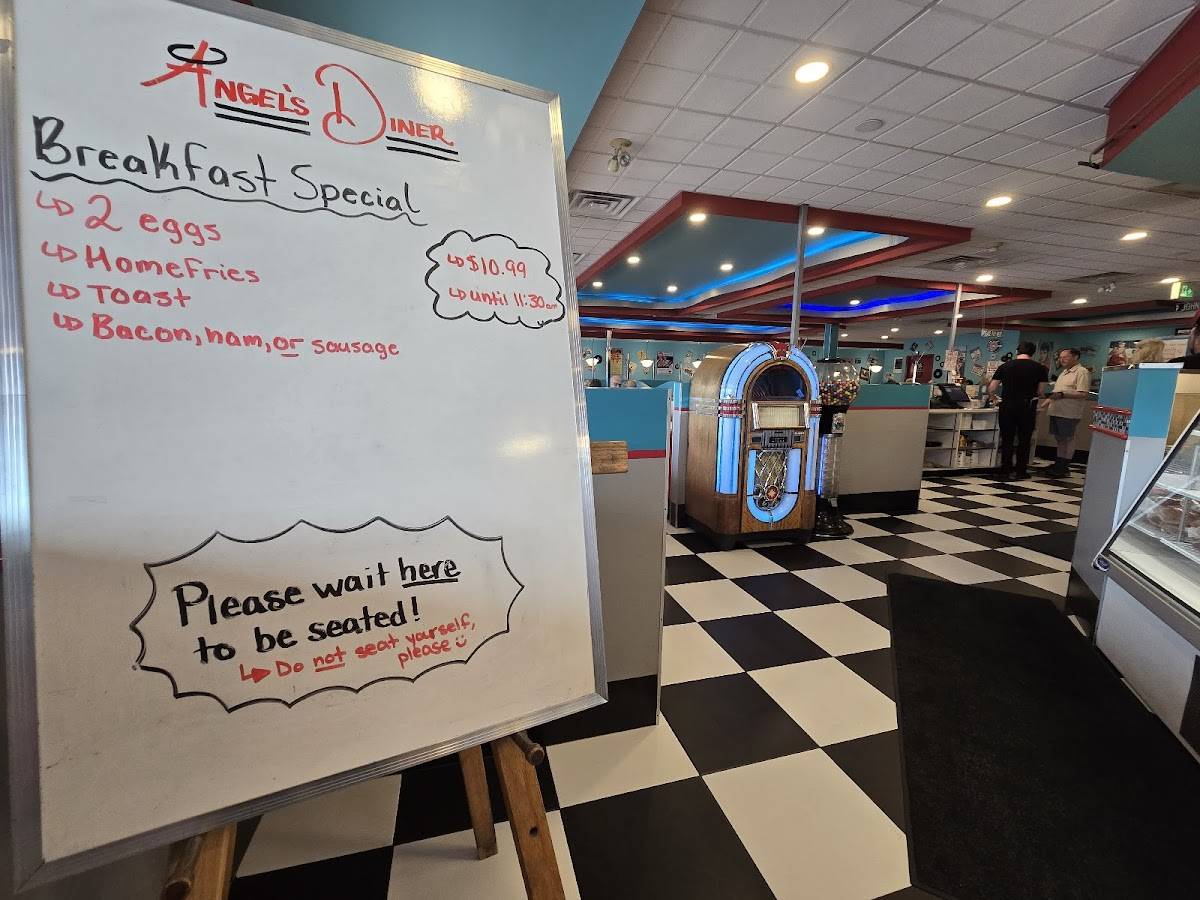 Angel's Diner
Breakfast Special
↳ 2 eggs
↳ HomeFries
↳ Toast
↳ Bacon, ham, or sausage
↳ $10.99
↳ until 11:30am
Please wait here
to be seated!
↳ Do not seat yourself,
please